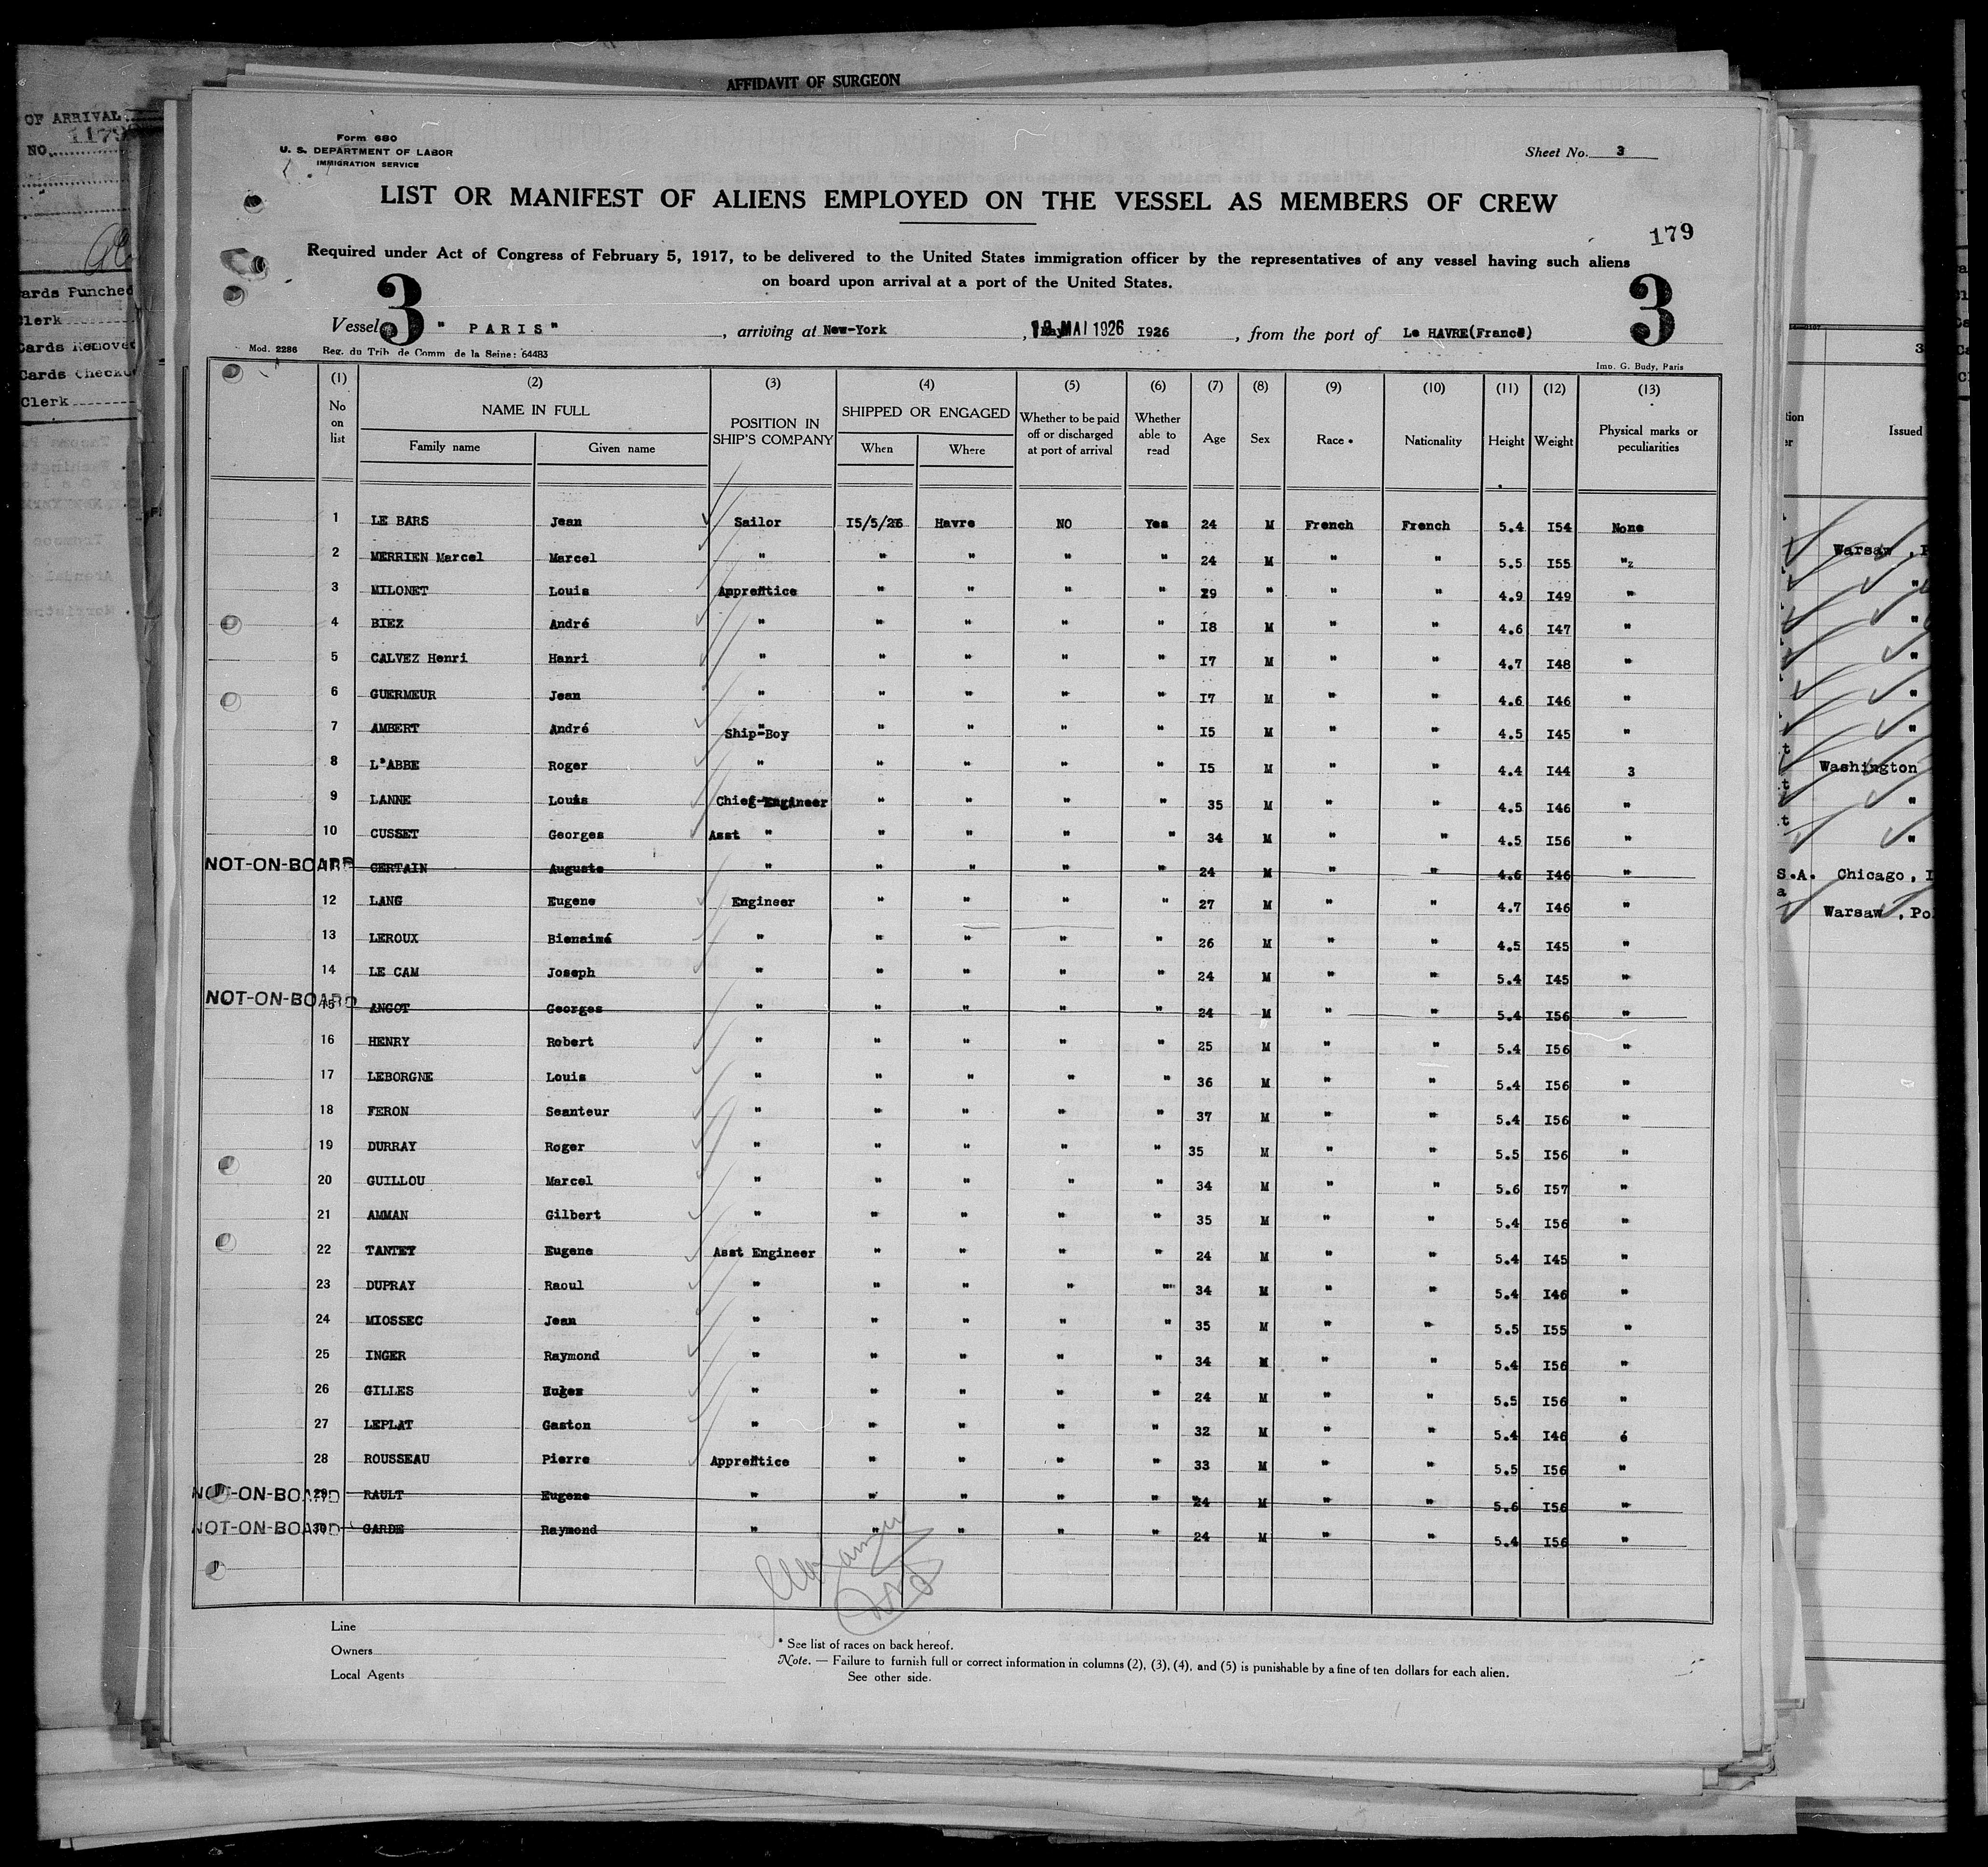 AFFIDAVIT OF SURGEON
OF ARRIVAL
NO. 1179
ards Punched
lerk
ards Removed
Cards Check
Clerk
Form 680
U. S. DEPARTMENT OF LABOR
IMMIGRATION SERVICE
Sheet No. 3
LIST OR MANIFEST OF ALIENS EMPLOYED ON THE VESSEL AS MEMBERS OF CREW
179
Required under Act of Congress of February 5, 1917, to be delivered to the United States immigration officer by the representatives of any vessel having such aliens
on board upon arrival at a port of the United States.
3 3
Vessel " PARIS" , arriving at New-York , MAI 1926 I926 , from the port of Le HAVRE(France)
Mod. 2286 Reg. du Trib. de Comm de la Seine: 64483 Imp. G. Budy, Paris
(1) (2) (3) (4) (5) (6) (7) (8) (9) (10) (11) (12) (13)
No on list NAME IN FULL POSITION IN SHIP'S COMPANY SHIPPED OR ENGAGED Whether to be paid off or discharged at port of arrival Whether able to read Age Sex Race * Nationality Height Weight Physical marks or peculiarities
Family name Given name When Where
1 LE BARS Jean Sailor I5/5/26 Havre NO Yes 24 M French French 5.4 I54 None
2 MERRIEN Marcel Marcel " " " " " 24 M " " 5.5 I55 "
3 MILONET Louis Apprentice " " " " 29 " " " 4.9 I49 "
4 BIEZ André " " " " " I8 M " " 4.6 I47 "
5 CALVEZ Henri Henri " " " " " I7 M " " 4.7 I48 "
6 GUERMEUR Jean " " " " " I7 M " " 4.6 I46 "
7 AMBERT André Ship-Boy " " " " I5 M " " 4.5 I45 "
8 L"ABBE Roger " " " " " I5 M " " 4.4 I44 3
9 LANNE Louis Chief-Engineer " " " " 35 M " " 4.5 I46 "
10 CUSSET Georges Asst " " " " " 34 M " " 4.5 I56 "
NOT-ON-BOARD 11 CERTAIN Auguste " " " " " 24 M " " 4.6 I46 "
12 LANG Eugene Engineer " " " " 27 M " " 4.7 I46 "
13 LEROUX Bienaimé " " " " " 26 M " " 4.5 I45 "
14 LE CAM Joseph " " " " " 24 M " " 5.4 I45 "
NOT-ON-BOARD 15 ANGOT Georges " " " " " 24 M " " 5.4 I56 "
16 HENRY Robert " " " " " 25 M " " 5.4 I56 "
17 LEBORGNE Louis " " " " " 36 M " " 5.4 I56 "
18 FERON Seanteur " " " " " 37 M " " 5.4 I56 "
19 DURRAY Roger " " " " " 35 M " " 5.5 I56 "
20 GUILLOU Marcel " " " " " 34 M " " 5.6 I57 "
21 AMMAN Gilbert " " " " " 35 M " " 5.4 I56 "
22 TANTET Eugene Asst Engineer " " " " 24 M " " 5.4 I45 "
23 DUPRAY Raoul " " " " " 34 M " " 5.4 I46 "
24 MIOSSEC Jean " " " " " 35 M " " 5.5 I55 "
25 INGER Raymond " " " " " 34 M " " 5.4 I56 "
26 GILLES " " " " " 24 M " " 5.5 I56 "
27 LEPLAT Gaston " " " " " 32 M " " 5.4 I46 6
28 ROUSSEAU Pierre Apprentice " " " " 33 M " " 5.5 I56 "
NOT-ON-BOARD 29 RAULT Eugene " " " " " 24 M " " 5.6 I56 "
NOT-ON-BOARD 30 GARDE Raymond " " " " " 24 M " " 5.4 I56 "
Line
Owners
Local Agents
* See list of races on back hereof.
Note. — Failure to furnish full or correct information in columns (2), (3), (4), and (5) is punishable by a fine of ten dollars for each alien.
See other side.
3
Issued
Warsaw , P
"
"
"
"
"
Washington
"
"
S.A. Chicago, I
a
Warsaw , Po